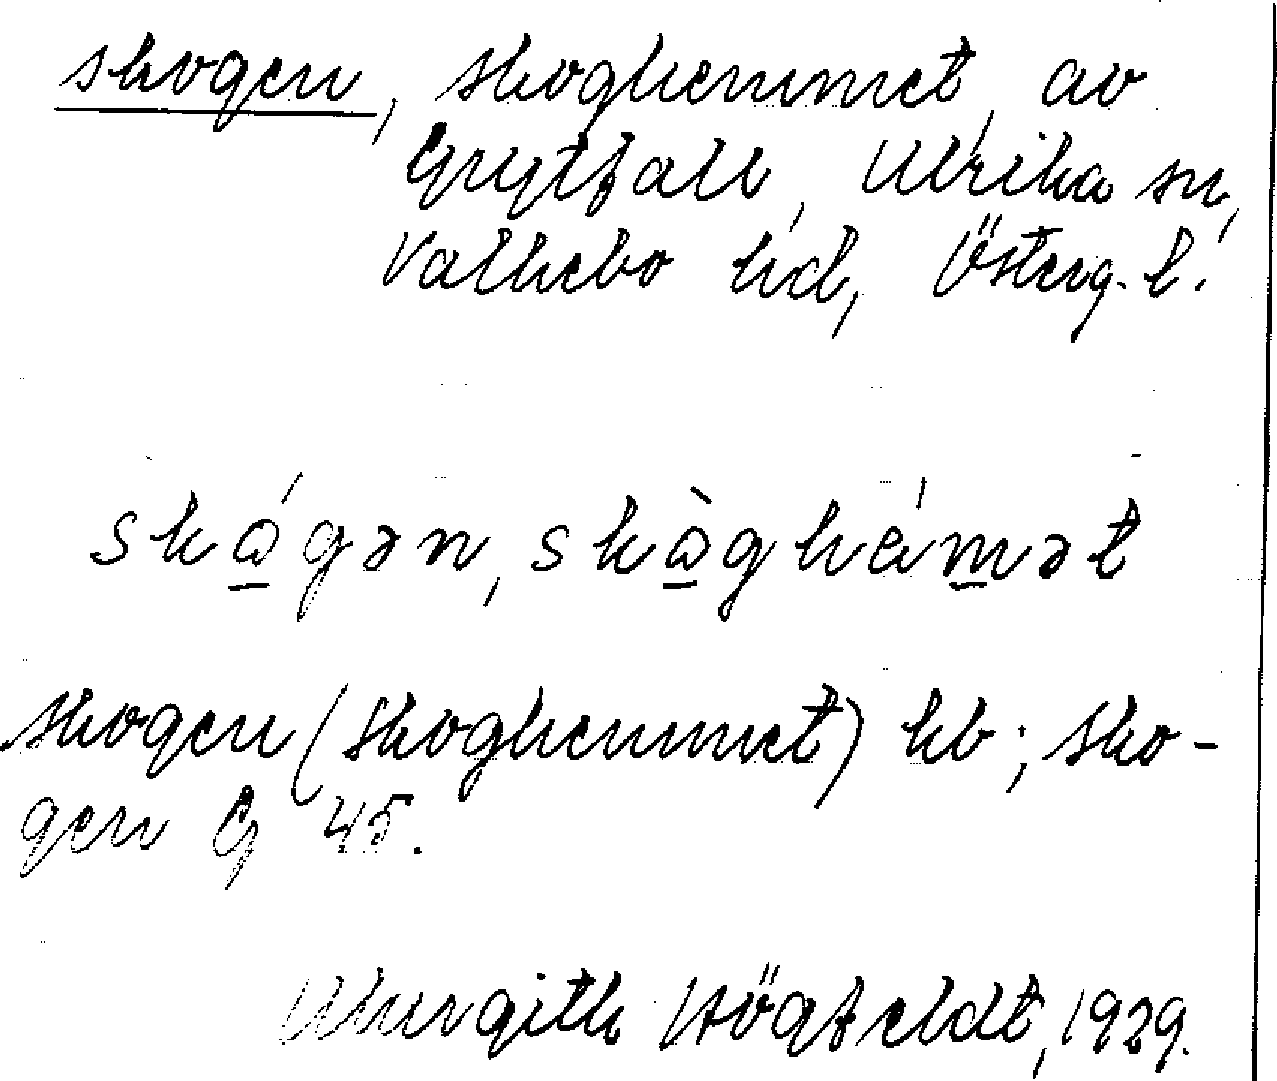 Skogen, Skoghemmet, av
Grytfall, Ulrika sn,
Valkebo hd, Österg. l.
skǫ́gən, skǫ̀ghém̲ət
Skogen (Skoghemmet) kb; Sko-
gen G 45.
Margith Högfeldt, 1929.